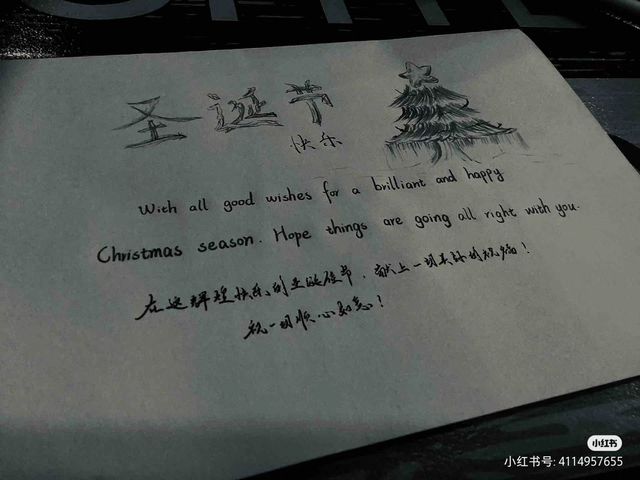 圣诞节
快乐
With all good wishes for a brilliant and happy
Christmas season. Hope things are going all right with you.
在这辉煌快乐的圣诞佳节，献上一切美好的祝福！
祝一切顺心如意！
小红书
小红书号: 4114957655